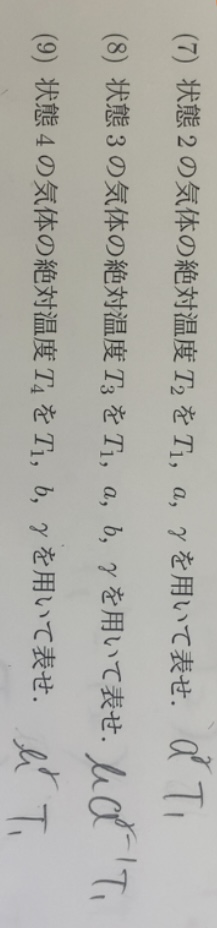 (7) 状態 2 の気体の絶対温度 T₂ を T₁, a, γ を用いて表せ. aᵞ T₁
(8) 状態 3 の気体の絶対温度 T₃ を T₁, a, b, γ を用いて表せ. ba^(γ-1) T₁
(9) 状態 4 の気体の絶対温度 T₄ を T₁, b, γ を用いて表せ. bᵞ T₁